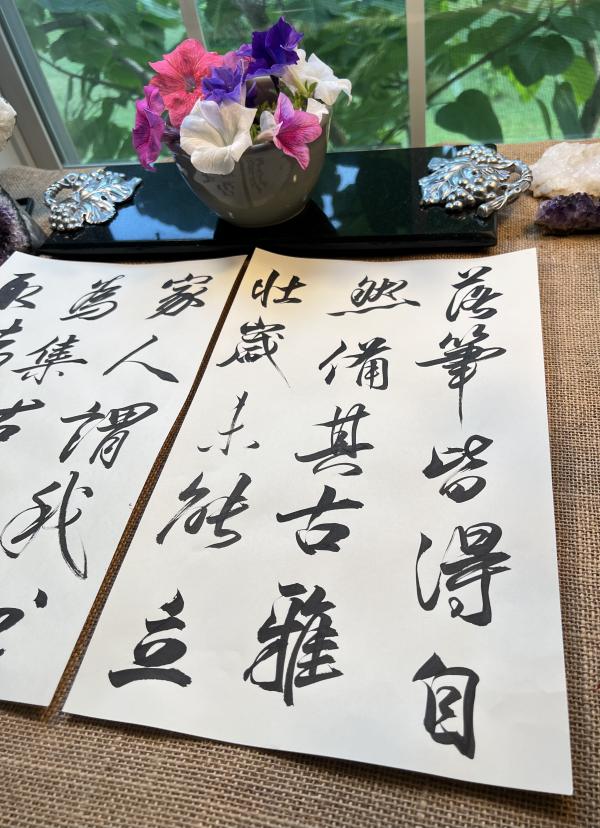 落筆皆得自
然備其古雅
壮歲未能立
家人謂我
為集古